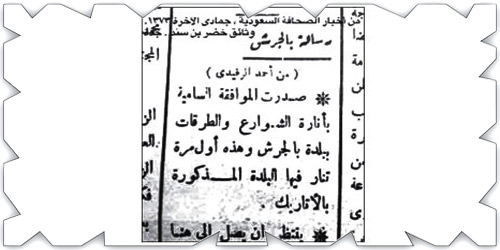 من أخبار الصحافة السعودية ، جمادى الآخرة ١٣٧٣.
وثائق خضر بن سند.
رسالة بالجرش
( من أحمد الرفيدي )
* صدرت الموافقة السامية
بأنارة الشوارع والطرقات
ببلدة بالجرش وهذه أول مرة
تنار فيها البلدة المذكورة
بالأتاريك .
* ينتظر ان يصل الى هنا